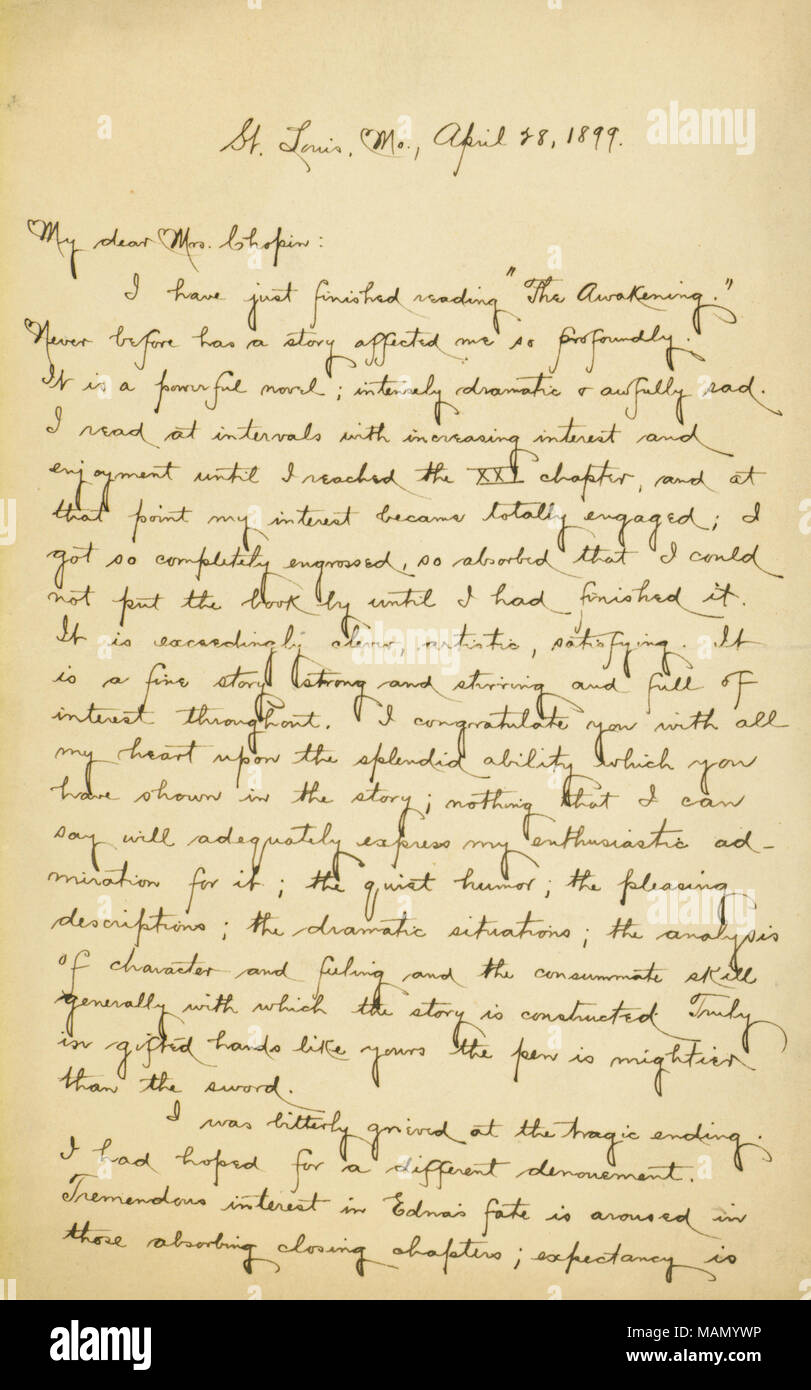 St. Louis, Mo., April 28, 1899.
My dear Mrs. Chopin:
I have just finished reading "The Awakening."
Never before has a story affected me so profoundly.
It is a powerful novel; intensely dramatic & awfully sad.
I read at intervals with increasing interest and
enjoyment until I reached the XXI chapter, and at
that point my interest became totally engaged; I
got so completely engrossed, so absorbed that I could
not put the book by until I had finished it.
It is exceedingly clever, artistic, satisfying. It
is a fine story strong and stirring and full of
interest throughout. I congratulate you with all
my heart upon the splendid ability which you
have shown in the story; nothing that I can
say will adequately express my enthusiastic ad-
miration for it; the quiet humor; the pleasing
descriptions; the dramatic situations; the analysis
of character and feeling and the consummate skill
generally with which the story is constructed. Truly
in gifted hands like yours the pen is mightier
than the sword.
I was bitterly grieved at the tragic ending.
I had hoped for a different denouement.
Tremendous interest in Edna's fate is aroused in
those absorbing closing chapters; expectancy is
alamy
Image ID: MAMYWP
www.alamy.com